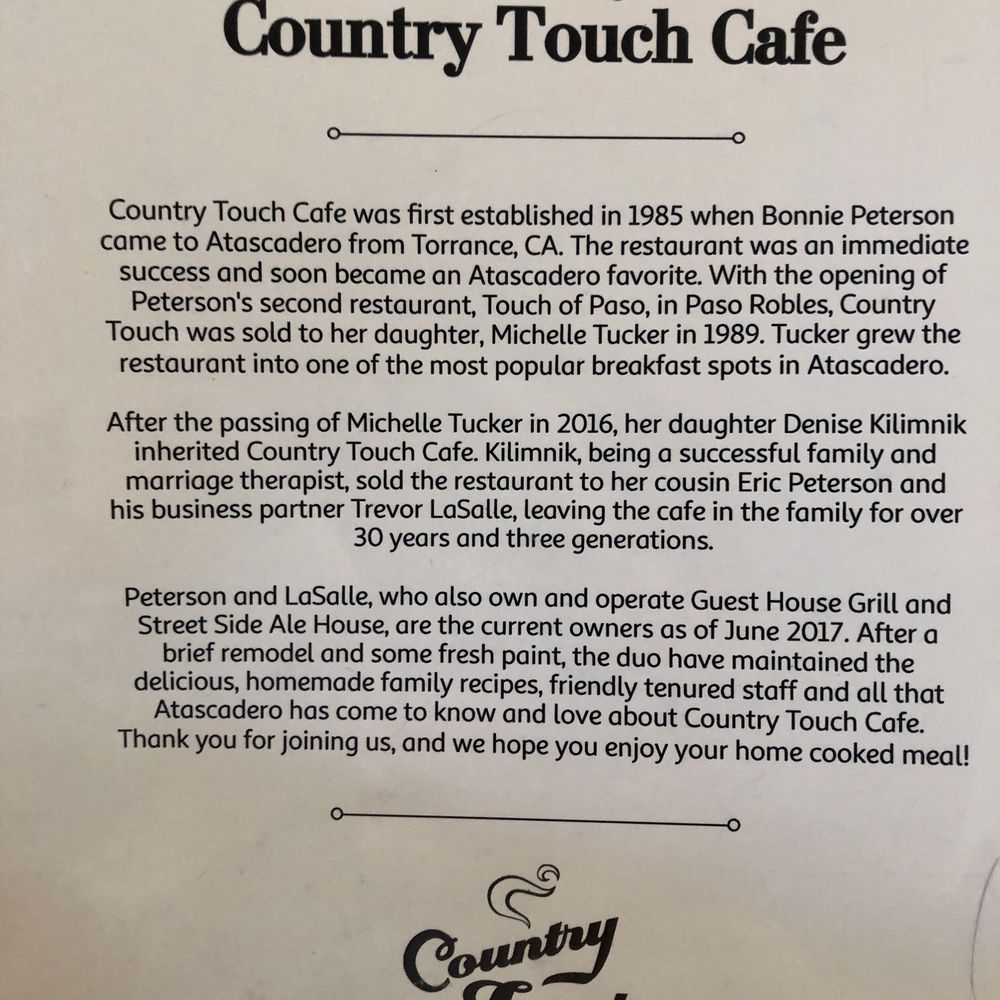 Country Touch Cafe
Country Touch Cafe was first established in 1985 when Bonnie Peterson
came to Atascadero from Torrance, CA. The restaurant was an immediate
success and soon became an Atascadero favorite. With the opening of
Peterson's second restaurant, Touch of Paso, in Paso Robles, Country
Touch was sold to her daughter, Michelle Tucker in 1989. Tucker grew the
restaurant into one of the most popular breakfast spots in Atascadero.
After the passing of Michelle Tucker in 2016, her daughter Denise Kilimnik
inherited Country Touch Cafe. Kilimnik, being a successful family and
marriage therapist, sold the restaurant to her cousin Eric Peterson and
his business partner Trevor LaSalle, leaving the cafe in the family for over
30 years and three generations.
Peterson and LaSalle, who also own and operate Guest House Grill and
Street Side Ale House, are the current owners as of June 2017. After a
brief remodel and some fresh paint, the duo have maintained the
delicious, homemade family recipes, friendly tenured staff and all that
Atascadero has come to know and love about Country Touch Cafe.
Thank you for joining us, and we hope you enjoy your home cooked meal!
Country